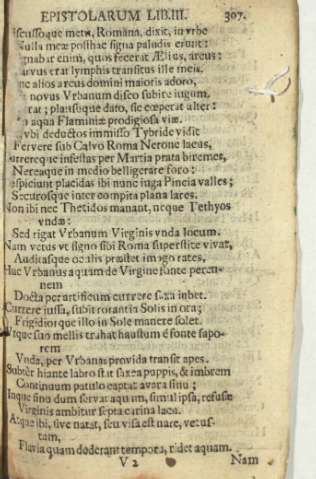 EPISTOLARUM LIB. III. 307.
scussoque metu, Romana, dixit, in vrbe
Nulla meæ posthac signa paludis erunt:
gnabat enim, quos fecerat Ælius, arcus:
arvus erat lymphis transitus ille meis.
nc alios arcus domini maioris adoro,
novus Vrbanum disco subire iugum.
rat; plausuque dato, sic cœperat alter:
aqua Flaminiæ prodigiosa viæ.
vbi deductos immisso Tybride vidit
Fervere sub Calvo Roma Nerone lacus,
urrereque infestas per Martia prata biremes,
Nereaque in medio belligerare foro:
espiciunt placidas ibi nunc iuga Pincia valles;
Securosque inter compita plana lares.
Non ibi nec Thetidos manant, neque Tethyos
vndæ:
Sed rigat Vrbanum Virginis vnda locum.
Nam vetus vt signo sibi Roma superstite vivat,
Auditasque oculis præstet imago rates,
Hac Vrbanus aquam de Virgine fonte peren-
nem
Docta per artificum currere saxa iubet.
Currere iussa, subit rorantia Solis in ora;
Frigidior que isto in Sole manere solet.
Vtque suo mellis trahat haustum é fonte sapo-
rem
Vnda, per Vrbanas provida transit apes.
Subter hiante labro stat saxea puppis, & imbrem
Continuum patulo captat avara sinu;
Inque sino dum servat aquam, simul ipsa, refusæ
Virginis ambitur septa carina lacu.
Atque ibi, sive natat, seu visa est nare, vetus-
tam,
Flavia quam doderant tempora, ridet aquam.
V 2 Nam